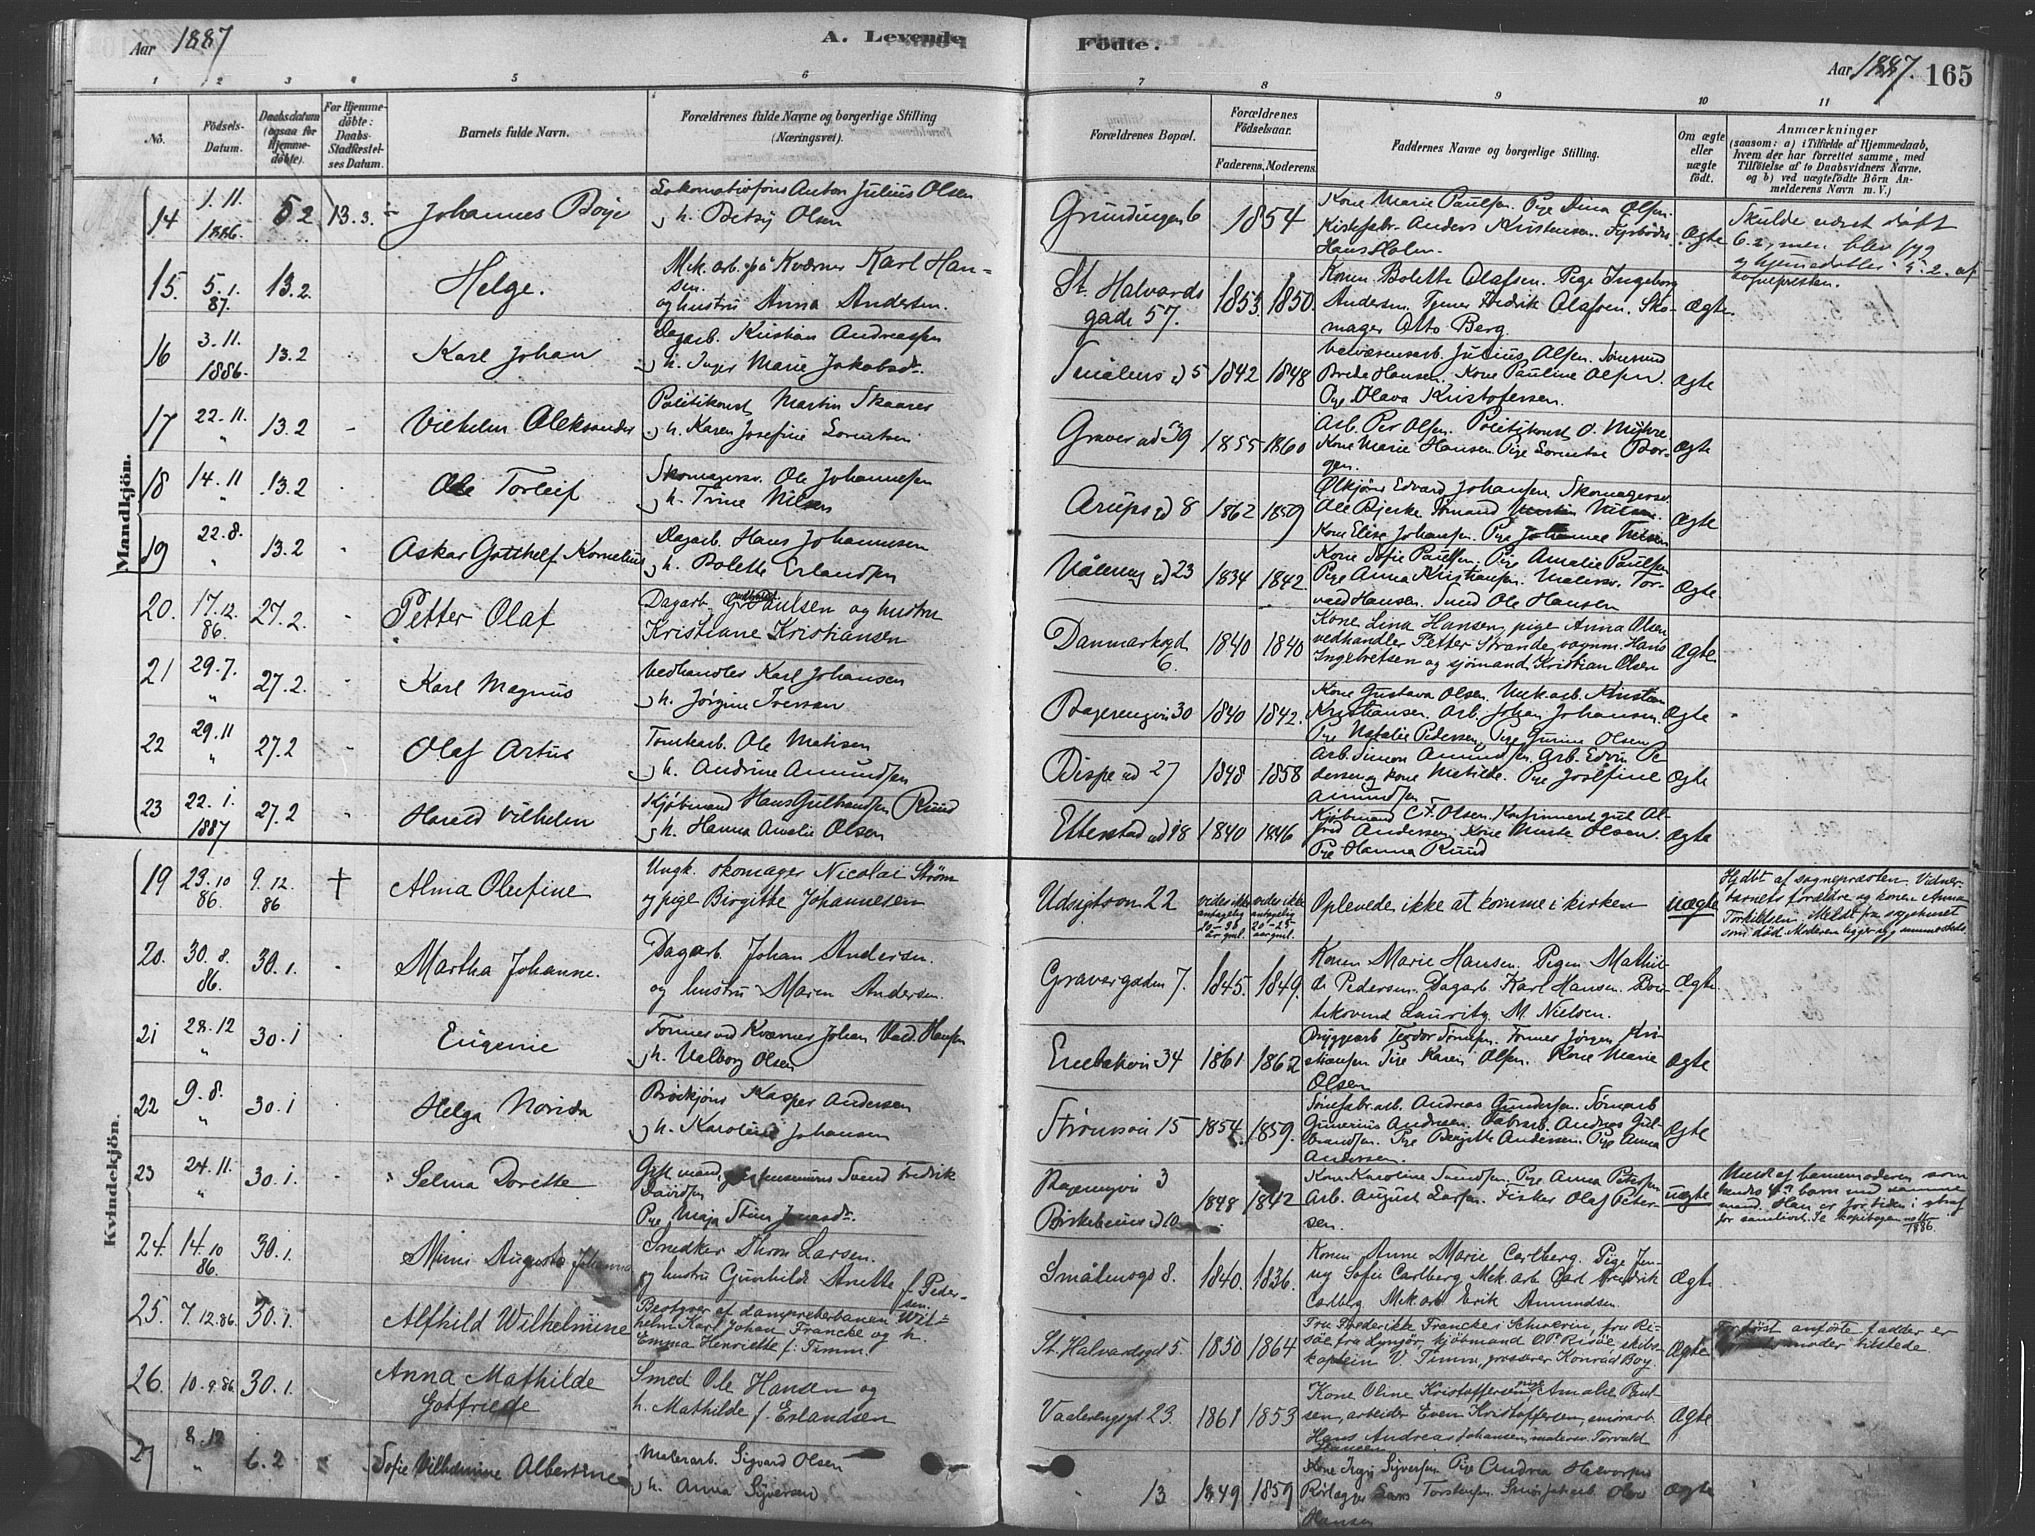 Aar 1887
A. Levende
Födte.
Aar 1887.
165
1 2 3 4 5 6 7 8 9 10 11
No.
Födsels-Datum.
Daabsdatum (ogsaa for Hjemme-döbte).
For Hjemme-döbte: Daabs-Stadfæstel-ses Datum.
Barnets fulde Navn.
Forældrenes fulde Navne og borgerlige Stilling (Næringsvei).
Forældrenes Bopæl.
Forældrenes Födselsaar.
Faderens. Moderens.
Faddernes Navne og borgerlige Stilling.
Om ægte eller uægte födt.
Anmærkninger
(saasom: a) i Tilfælde af Hjemmedaab, hvem der har forrettet samme, med Tilföielse af to Daabsvidners Navne, og b) ved uægtefödte Börn An-melderens Navn m. V.)
Mandkjön.
14 1.11. 1886. 5 2 13.3. Johannes Boye
Anton Julius Olsen
h. Betsy Olsen
6 1854
Kone Marie Paulsen. Pige Dina Olsen.
Anders Kristensen.
Hans Holm.
Ægte
Skulde været døbt
6.2, men blev
15. 5.1. 87. 13.2. Helge.
Mek. arb. på Kværner Karl Han-
sen
og hustru Anna Andersen.
St. Halvards
gade 57. 1853. 1850.
Konen Bolette Olafsen. Pige Ingeborg
Andersen. Fredrik Olafsen. Sko-
mager Otto Berg.
Ægte.
16 3.11. 1886. 13.2 Karl Johan
Dagarb. Kristian Andreassen
h. Inger Marie Jakobsd.
5 1842 1848
Julius Olsen.
Hansen. Kone Pauline Olsen.
Pige Olava Kristofersen.
Ægte
17 22.11. " 13.2 - Vilhelm Aleksander
Politikonst Martin Skaares
h. Karen Josefine Lorentsen
39 1855 1860
Arb. Per Olsen. Politikonst O.
Kone Marie Hansen. Pige Lorentse Bor-
gen.
Ægte
18 14.11 " 13.2 Ole Torleif
Ole Johannesen
h. Trine Nilsen
Arups gd 8 1862 1859
Edvard Johansen.
Ole Bjerke
Kone Elise Johansen. Pige
Ægte
19 22.8. " 13.2 Askar Gotthelf Kornelius
Dagarb. Hans Johannesen
h. Bolette Erlandsen
23 1834 1842.
Kone Sofie Paulsen. Pige Amalie Paulsen
Pige Anna Kristiansen. Tor-
vald Hansen. Smed Ole Hansen
Ægte.
20. 17.12. 86. 27.2. Petter Olaf
Dagarb. Paulsen og hustru
Kristiane Kristiansen
Danmarksgd
6. 1840 1840
Kone Lina Hansen, pige Anna Olsen,
vedhandler Petter Strande, vognm. Hans
Ingebretsen og sjömand Kristian Olsen
Ægte
21 29.7. " 27.2. Karl Magnus
Vedhandler Karl Johansen
h. Jørgine Iversen
30 1840 1842.
Kone Gustava Olsen. Mek. arb. Kristian
Kristiansen. Arb. Johan Johansen.
Pige Natalie Pedersen. Pige Gurine Olsen
Ægte
22 29.11 " 27.2 Olaf Artur
Tomtearb. Ole Matisen
h. Andrine Amundsen
Bispegd 27 1848 1858
Arb. Simon Amundsen. Arb. Edvin Pe-
dersen og kone Matilde. Pige Josefine
Amundsen
Ægte
23 22.1. 1887 27.2 Harald Vilhelm
Kjøbmand Hans Gulbrandsen Ruud
h. Hanna Amalie Olsen
Etterstadgd 18 1840 1846
Kjøbmand C.F. Olsen. Konfirmeret gut Al-
fred Andersen. Kone Marte Olsen.
Pige Hanna Ruud
Ægte
Kvindekjön.
19 29.10 86. 9.12. 86 † Alma Olufine
Ungk. skomager Nicolai Strøm
og pige Birgitte Johannesen
Udsigtsvn 22
vides ikke antagelig 20-30 år gml.
vides ikke antagelig 20-25 aar gml.
Oplevede ikke at komme i kirken
uægte
Hjdbt af sognepræsten. Vidner:
barnets forældre og konen Anna
Torkildsen. Meldt fra sygehuset
som død. Moderen ligger syg sammesteds
20. 30.8. 86. 30.1. Martha Johanne.
Dagarb. Johan Andersen.
og hustru Maren Andersen.
Gravergaden 7. 1845. 1849.
Konen Marie Hansen. Pigen Mathil-
de Pedersen. Dagarb. Karl Hansen. Bou-
tikovend Lauritz M. Nielsen.
Ægte.
21 28.12 " 30.1 Eugenie
Former ved Kværner Johan Vald. Hansen
h. Valborg Olsen
Enebakvei 34 1861 1862
Bryggearb Teodor Tönnesen. Former Jörgen Kri-
stiansen Pige Karen Olsen. Kone Marie
Olsen
Ægte
22 9.8. " 30.1 Helga Norida
Kasper Andersen
h. Karoline Johansen
Strömsvei 15 1854. 1859.
Andreas Gundersen.
Gunerius Andresen. Fabrarb. Andreas Gul-
brandsen. Pige Birgitte Andersen. Pige Anna
Andersen.
Ægte
23 24.11. " 30.1. Selma Dorette
Gift mand, Svend Fredrik
Davidsen
Pige Maja Stina Jonasd.
3
10 1848 1842
Kone Karoline Svendsen. Pige Anna Petersen
Arb. August Larsen. Fisker Olaf Peter-
sen.
uægte
Meldt af barnemoderen som
hendes barn med samme
mand. Han er for tiden i straf
for samlivet. Se kopibogen 1886.
24. 14.10 86. 30.1. Mimi Augusta Johanne
Snedker Thron Larsen.
og hustru Gunhilde Anette f. Peder-
sen.
Smålensgd 8. 1840. 1836.
Konen Anne Marie Carlberg. Pige Jen-
ny Sofie Carlberg. Mek. arb. Carl Fredrik
Carlberg. Mek arb Erik Amundsen.
Ægte.
25. 7.12.86. 30.1. Alfhild Wilhelmine
Bestyrer af Wil-
helm Karl Johan Francke og h.
Emma Henriette f. Timm.
St. Halvardsgd 5. 1850 1864
Fru Frederikke Francke i Schwerin, fru Ri-
söe fra Lyngör, kjöbmand O.P. Risöe, skibs-
kaptein V. Timm, grosserer Konrad Boy
Ægte
Forøst anførte fadder er
tilstede.
26. 10.9.86. 30.1. Anna Mathilde
Gotfriede
Smed Ole Hansen og
h. Mathilde f. Erlandsen
Vaalerengsgt. 23. 1861 1853
Kone Oline Kristoffersen, pige Amalie Paul-
sen, arbeider Even Kristoffersen,
Hans Andreas Johansen, Torvald
Hansen
Ægte
27 8.12 " 6.2 Sofie Vilhelmine Albertine
Malerarb. Sigvard Olsen
h. Anna Syversen
13 1849 1859
Kone Syversen Pige Andrea Halvorsen
Rörlægger Torstensen.
Hansen
Ægte